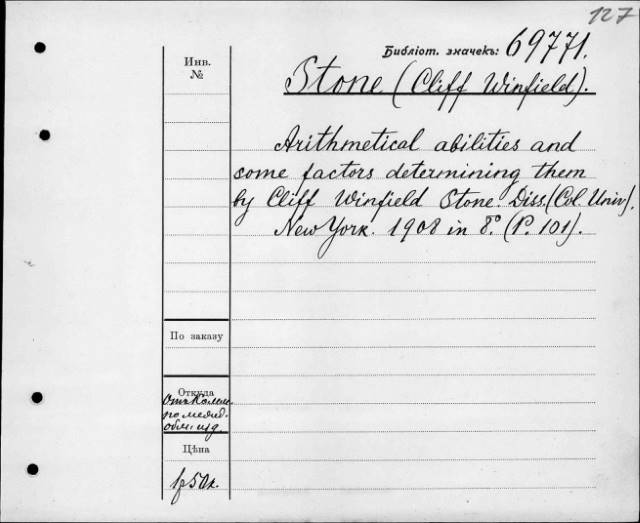 127
Библіот. значекъ: 69771.
Инв.
№
Stone (Cliff Winfield).
Arithmetical abilities and
some factors determining them
by Cliff Winfield Stone. Diss. (Col. Univ).
New York. 1908 in 8º. (P. 101).
По заказу
Откуда
отъ Комис.
по межд.
обм. изд.
Цѣна
1р50к.